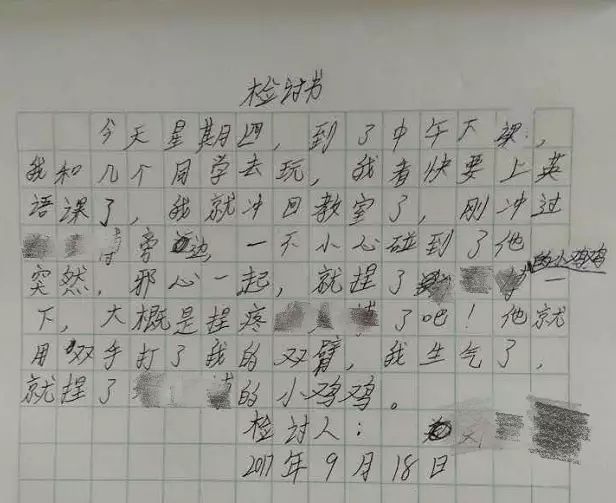 检讨书
今天星期四，到了中午下课，
我和几个同学去玩，我看快要上英
语课了，我就冲回教室了，刚冲过
旁边，一不小心碰到了他
的小鸡鸡
突然，邪心一起，就捏了 一
下，大概是捏疼 了吧！他就
用双手打了我的双臂，我生气了，
就捏了 的小鸡鸡。
检讨人：
2017年9月18日